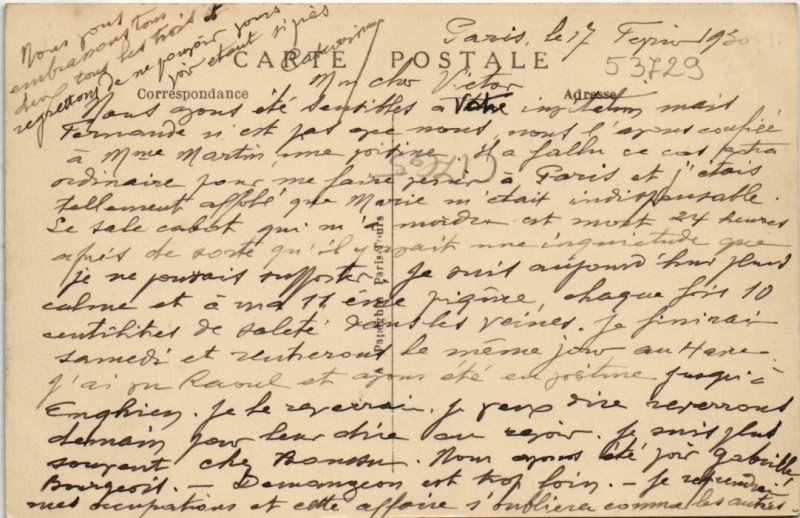 CARTE POSTALE
Correspondance
Adresse
Paris, le 17 Février 1930
53729
Mon cher Victor
Nous avons été sensibles à votre invitation mais
Fernande n'est pas avec nous, nous l'avons confiée
à Mme Martin, une voisine, il a fallu ce cas extra
ordinaire pour me faire venir à Paris et j'étais
tellement affolé que Marie m'était indispensable.
Le sale cabot qui m'a mordu est mort 24 heures
après de sorte qu'il y avait une inquiétude que
je ne pouvais supporter, je suis aujourd'hui plus
calme et à ma 11 ème piqûre, chaque fois 10
centilitres de saleté dans les veines. Je finirai
samedi et rentrerons le même jour au Havre.
J'ai vu Raoul et avons été en jusqu'à
Enghien. Je le reverrai. Je veux dire reverrons
demain pour leur dire au revoir. Je suis plus
souvent chez Nous avons été voir Gabrielle
Bourgeois. — Demangeon est trop loin. — Je reprendrai
mes occupations et cette affaire s'oubliera comme les autres
Nous vous
embrassons tous
deux tous les trois et
regrettons de ne pouvoir vous
voir étant si près
Papeghin Paris-Tours